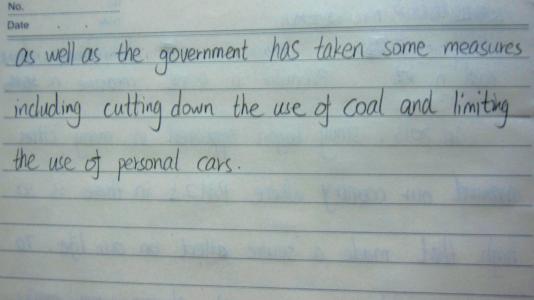 No.
Date . .
as well as the government has taken some measures
including cutting down the use of coal and limiting
the use of personal cars.